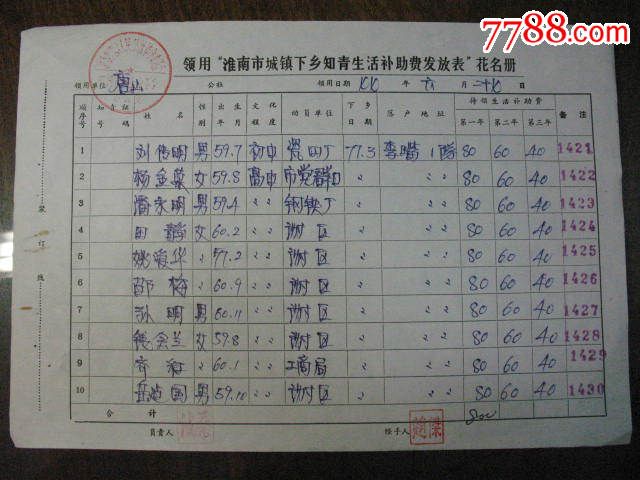 7788.com
领用“淮南市城镇下乡知青生活补助费发放表”花名册
领用单位 唐山 公社 领用日期 年 月 日
顺序号 知青证号码 姓名 性别 出生年月 文化程度 动员单位 下乡日期 落户地址 待领生活补助费 备注
第一年 第二年 第三年
1 刘 明 男 59.7 初中 77.3 李嘴 1队 80 60 40 1421
2 杨金 女 59.8 高中 〃 〃 〃 80 60 40 1422
3 潘永明 男 59.4 〃 〃 钢铁厂 〃 〃 〃 80 60 40 1423
4 田 女 60.2 〃 〃 谢区 〃 〃 〃 80 60 40 1424
5 姚爱华 〃 57.2 〃 〃 谢区 〃 〃 〃 80 60 40 1425
6 邵梅 〃 60.9 〃 〃 谢区 〃 〃 〃 80 60 40 1426
7 孙明 男 60.11 〃 〃 谢区 〃 〃 〃 80 60 40 1427
8 魏金兰 女 59.8 〃 〃 谢区 〃 〃 〃 80 60 40 1428
9 齐 〃 60.1 〃 〃 工商局 〃 〃 〃 80 60 40 1429
10 岳 国 男 59.10 〃 〃 谢区 〃 〃 〃 80 60 40 1430
合计 800
负责人 经手人
装订线